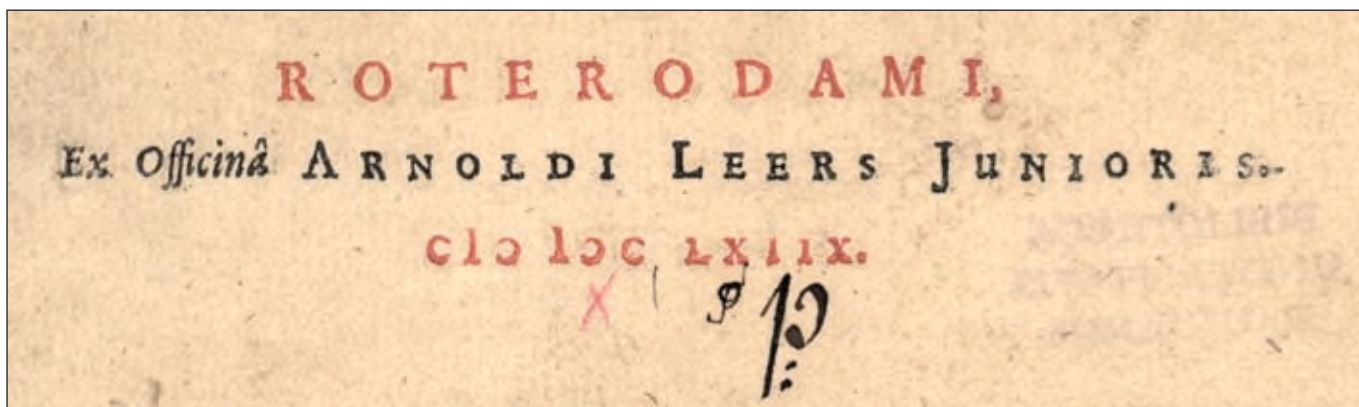 ROTERODAMI,
Ex Officinâ ARNOLDI LEERS JUNIORIS.
CIↃ IↃC LXIIX.
X